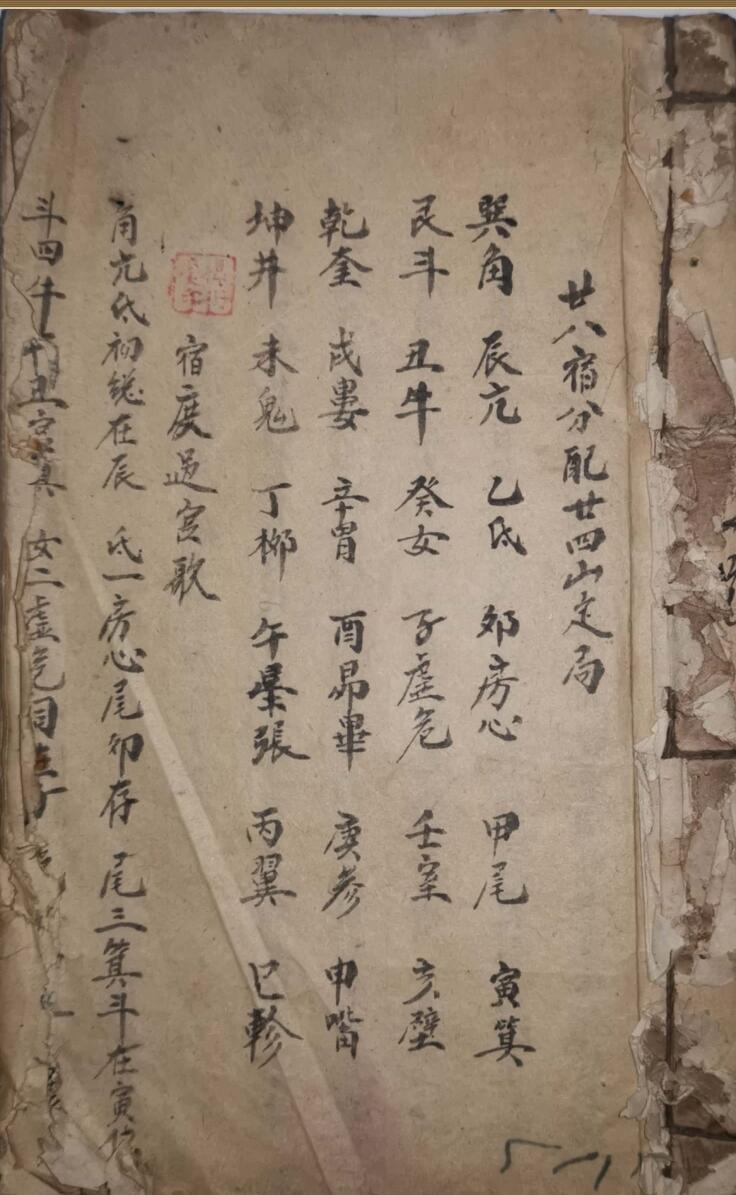 廿八宿分配廿四山定局
巽角 辰亢 乙氐 卯房心 甲尾 寅箕
艮斗 丑牛 癸女 子虛危 壬室 亥壁
乾奎 戌婁 辛胃 酉昴畢 庚參 申嘴
坤井 未鬼 丁柳 午星張 丙翼 巳軫
宿度過宮歌
角亢氐初総在辰 氐一房心尾卯存 尾三箕斗在寅
斗四牛 丑宮 女二虛危同 子